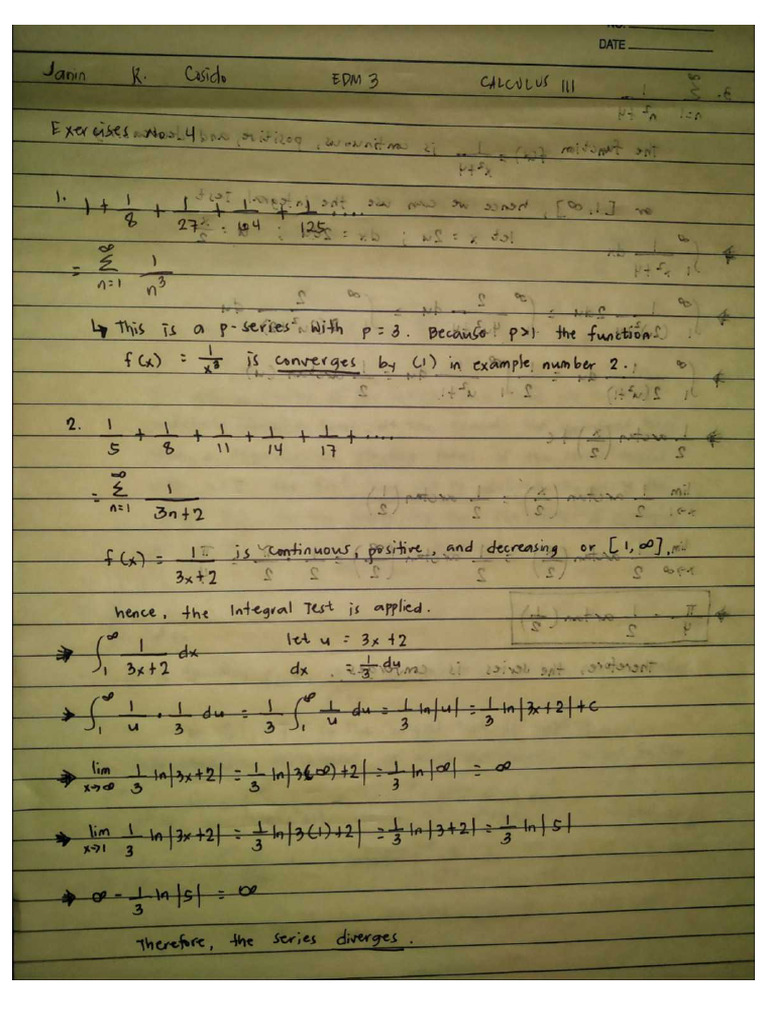 NO.
DATE
Janin R. Cosido EDM 3 CALCULUS III
Exercises No. 4
1. 1 + 1/8 + 1/27 + 1/64 + 1/125 ....
= ∑_{n=1}^{∞} 1/n³
↳ This is a p-series with p = 3. Because p>1 the function
f(x) = 1/x³ is converges by (1) in example number 2.
2. 1/5 + 1/8 + 1/11 + 1/14 + 1/17 + ....
= ∑_{n=1}^{∞} 1/(3n+2)
f(x) = 1/(3x+2) is continuous, positive, and decreasing or [1, ∞],
hence, the Integral Test is applied.
⇒ ∫_1^∞ 1/(3x+2) dx let u = 3x+2
dx = 1/3 du
⇒ ∫_1^∞ 1/u · 1/3 du = 1/3 ∫_1^∞ 1/u du = 1/3 ln|u| = 1/3 ln|3x+2| + C
⇒ lim x→∞ 1/3 ln|3x+2| = 1/3 ln|3(∞)+2| = 1/3 ln|∞| = ∞
⇒ lim x→1 1/3 ln|3x+2| = 1/3 ln|3(1)+2| = 1/3 ln|3+2| = 1/3 ln|5|
⇒ ∞ - 1/3 ln|5| = ∞
Therefore, the series diverges.